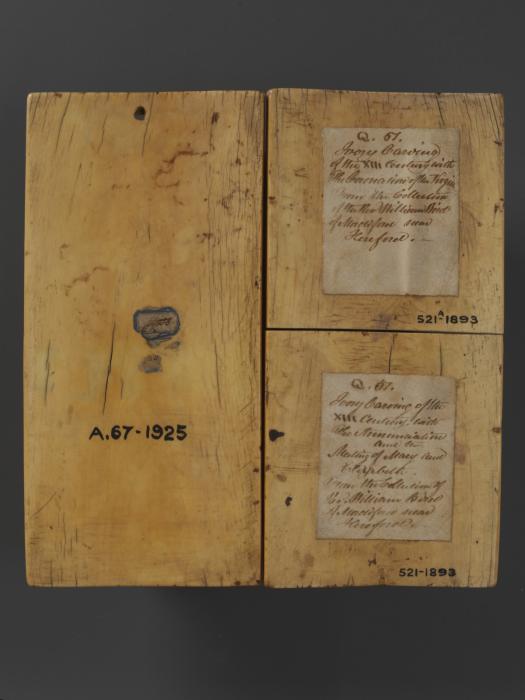 A.67-1925
Q. 67.
Ivory Carving
of the XIII Century with
The Coronation of the Virgin
From the Collection
of the Rev William Bird
of Mordiford near
Hereford. —
521A-1893
Q. 67.
Ivory Carving of the
XIII Century with
The Annunciation
and the
Meeting of Mary and
Elizabeth.
From the Collection of
Rev William Bird
of Mordiford near
Hereford.
521-1893